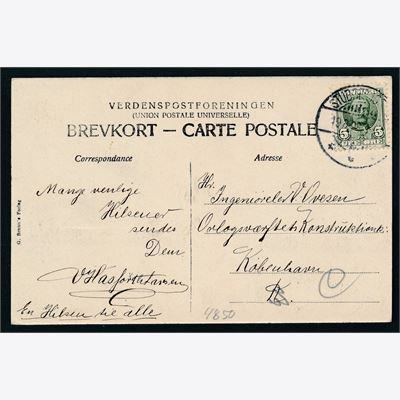 VERDENSPOSTFORENINGEN
(UNION POSTALE UNIVERSELLE)
BREVKORT — CARTE POSTALE
Correspondance
Adresse
STUB
5 5
Mange venlige
Hilsener
sendes
Dem
En Hilsen til alle
Hr.
Ingeniörelev V. Ovesen
Orlogsværftets Konstruktionsk.
København
K.
4850